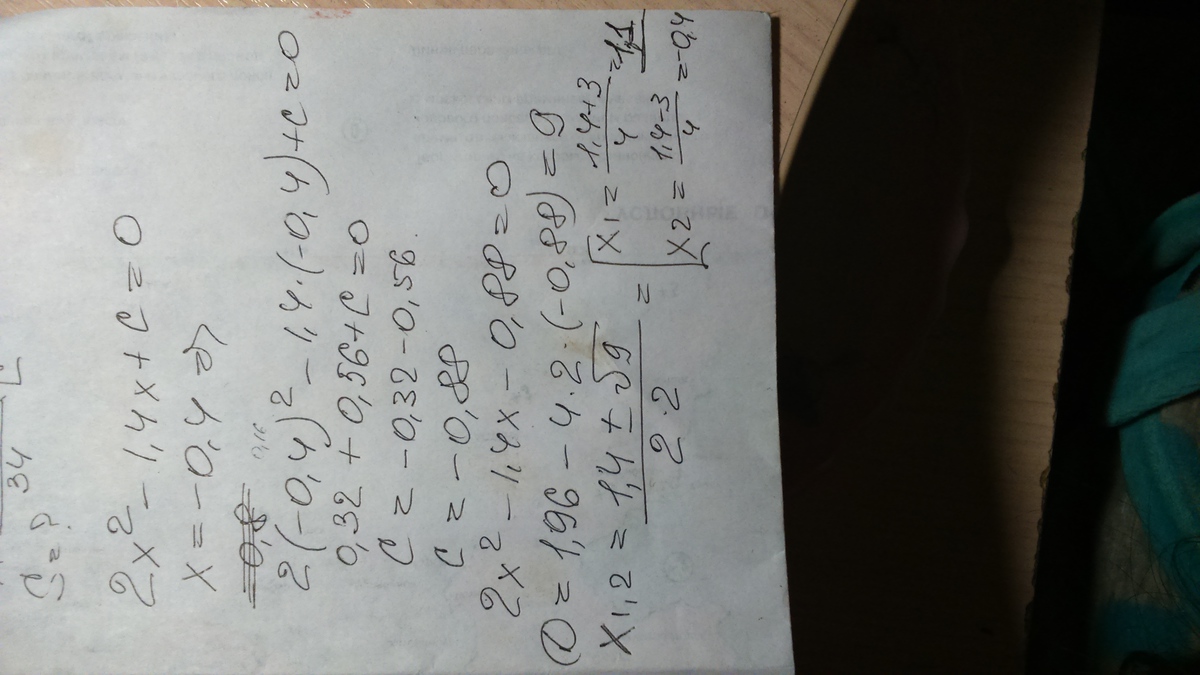 34
S = ?
2x² - 1,4x + C = 0
x = -0,4 ⇒
2(-0,4)² - 1,4·(-0,4) + C = 0
0,32 + 0,56 + C = 0
C = -0,32 - 0,56.
C = -0,88
2x² - 1,4x - 0,88 = 0
D = 1,96 - 4·2·(-0,88) = 9
x1,2 = (1,4 ± √9) / (2·2) = [x1 = (1,4+3) / 4 = 1,1
x2 = (1,4-3) / 4 = -0,4